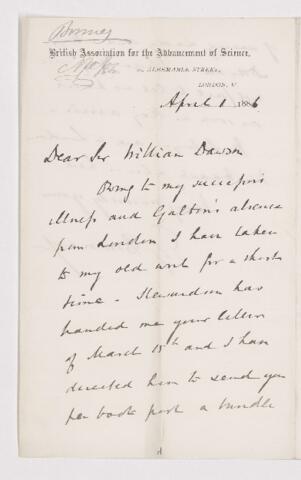 Bonney
British Association for the Advancement of Science,
22, ALBEMARLE STREET,
LONDON, W.
April 1 1886
Dear Sir William Dawson
Owing to my successor's
illness and Galton's absence
from London I have taken
to my old work for a short
time - Stewardson has
handed me your letter
of March 15th and I have
directed him to send you
per book post a bundle